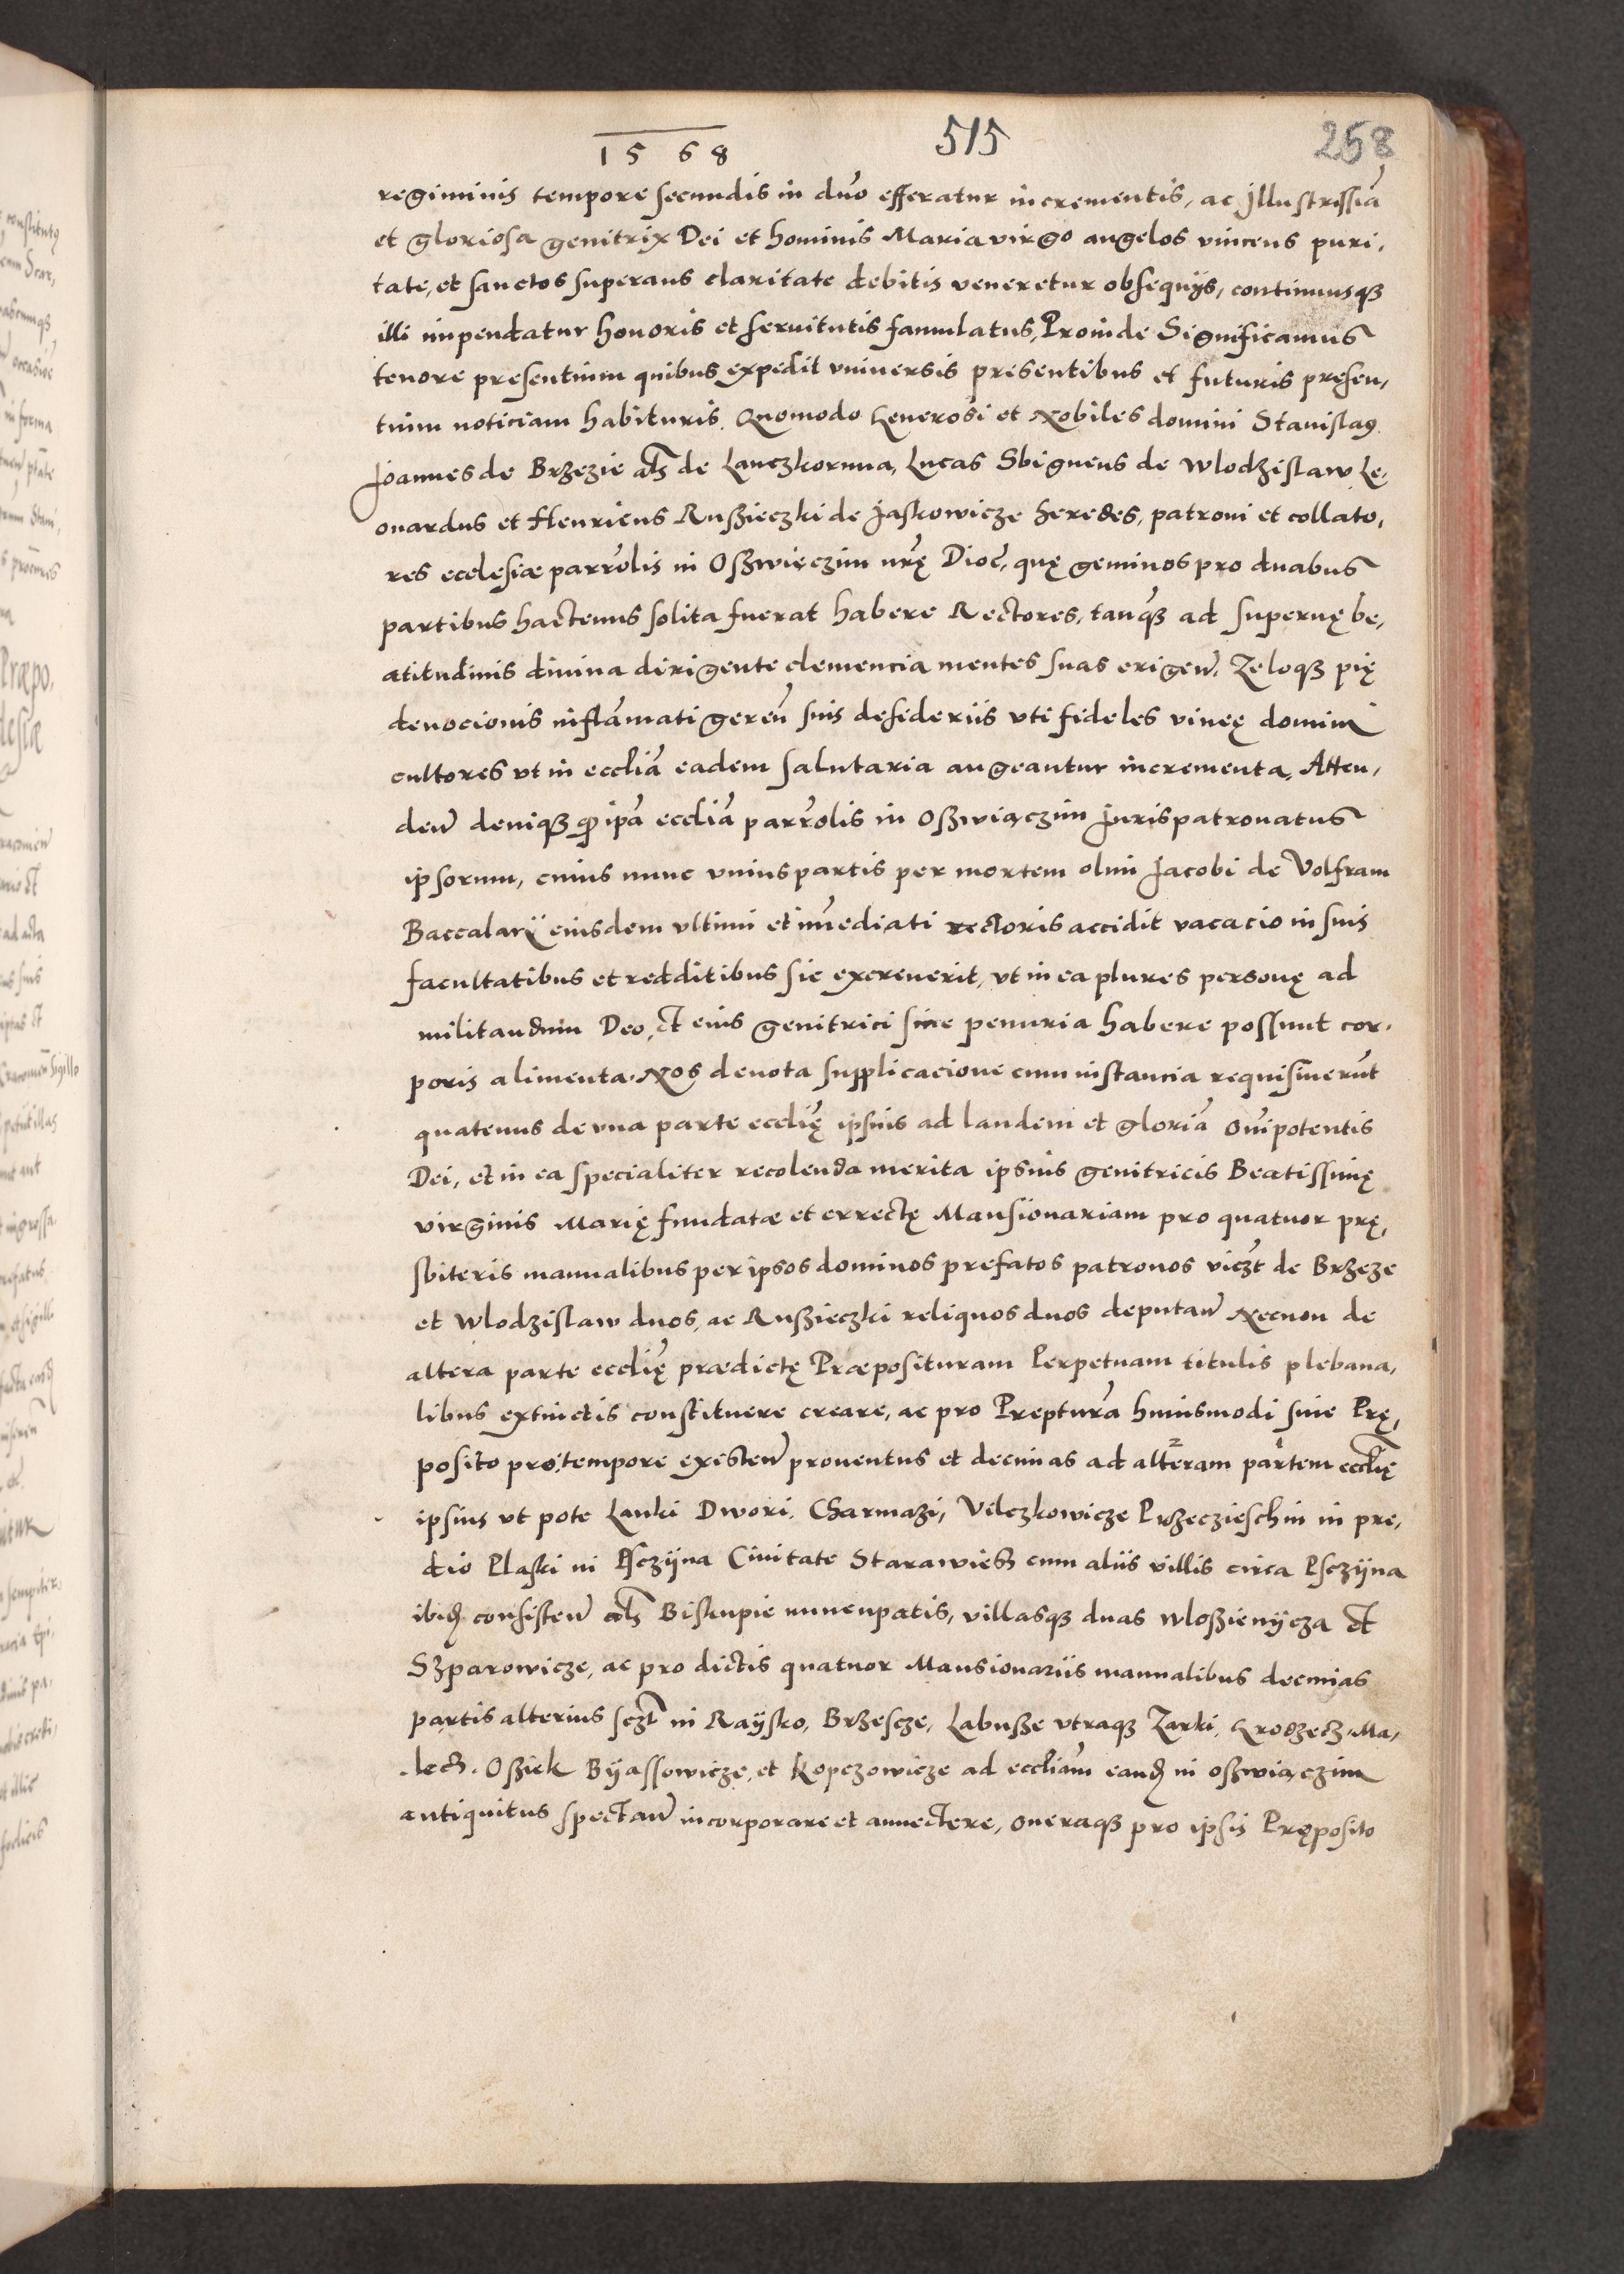 1568
515
258
regiminis tempore secundis in duo efferatur incrementis, ac Jllustrissiã
et gloriosa genitrix Dei et hominis Maria virgo angelos vincens puri,
tate, et sanctos superans claritate debitis veneretur obsequijs, continuusqꝫ
illi impendatur honoris et seruitutis famulatus, Proinde Significamus
tenore presentium quibus expedit vniuersis presentibus et futuris presen,
tium noticiam habituris. Quomodo Generosi et Nobiles domini Stanislaꝰ
Joannes de Brzezie als de Lanczkoruna, Lucas Sbigneus de Wlodzislaw Le,
onardus et Henricus Rußieczki de Jaskowicze heredes, patroni et collato,
res ecclesiæ parrolis in Oßwięczim nrę Dioc, quę geminos pro duabus
partibus hactenus solita fuerat habere Rectores, tanqꝫ ad supernę be,
atitudinis diuina dirigente clemencia mentes suas erigen. Zeloqꝫ pię
deuocionis inflãmati geren suis desideriis vti fideles vineę domini
cultores vt in eccliã eadem salutaria augeantur incrementa, Atten,
den deniqꝫ ꝙ ipã eccliã parrolis in Oßwiączim Jurispatronatus
ipsorum, cuius nunc vnius partis per mortem olim Jacobi de Volfram
Baccalarij eiusdem vltimi et imediati rectoris accidit vacacio in suis
facultatibus et redditibus sic excreuerit, vt in ea plures personę ad
militandum Deo, et eius genitrici sine penuria habere possunt cor,
poris alimenta. Nos deuota supplicacione cum instancia requisiuerũt
quatenus de vna parte ecclię ipsius ad laudem et gloriã oĩpotentis
Dei, et in ea specialiter recolenda merita ipsius genitricis Beatissimę
virginis Marię fundatæ et errectę Mansionariam pro quatuor prę,
sbiteris manualibus per ipsos dominos prefatos patronos viczt de Brzeze
et Wlodzislaw duos, ac Rußieczki reliquos duos deputan Necnon de
altera parte ecclię prædictę Præposituram Perpetuam titulis plebana,
libus extinctis constituere creare, ac pro Prepturã huiusmodi siue Prę,
posito pro tempore existen prouentus et decimas ad alteram partem eccłię
ipsius vt pote Lanki Dwori, Charmazi, Vilczkowicze Przeczieschin in pre,
dio Plaski in Psczijna Ciuitate Starawieß cum aliis villis circa Psczijna
ibid consisten als Biskupie nuncupatis, villasqꝫ duas Wloßienijcza et
Szparowicze, ac pro dictis quatuor Mansionariis manualibus decimas
partis alterius sczt in Raijsko, Brzescze, Labusze vtraqꝫ Zarki, Grodzecz, Ma,
lecz. Oßiek Bijassowicze, et Kopczowicze ad eccliam eand in oßwiączim
antiquitus spectan incorporare et annectere, oneraqꝫ pro ipsis Pręposito